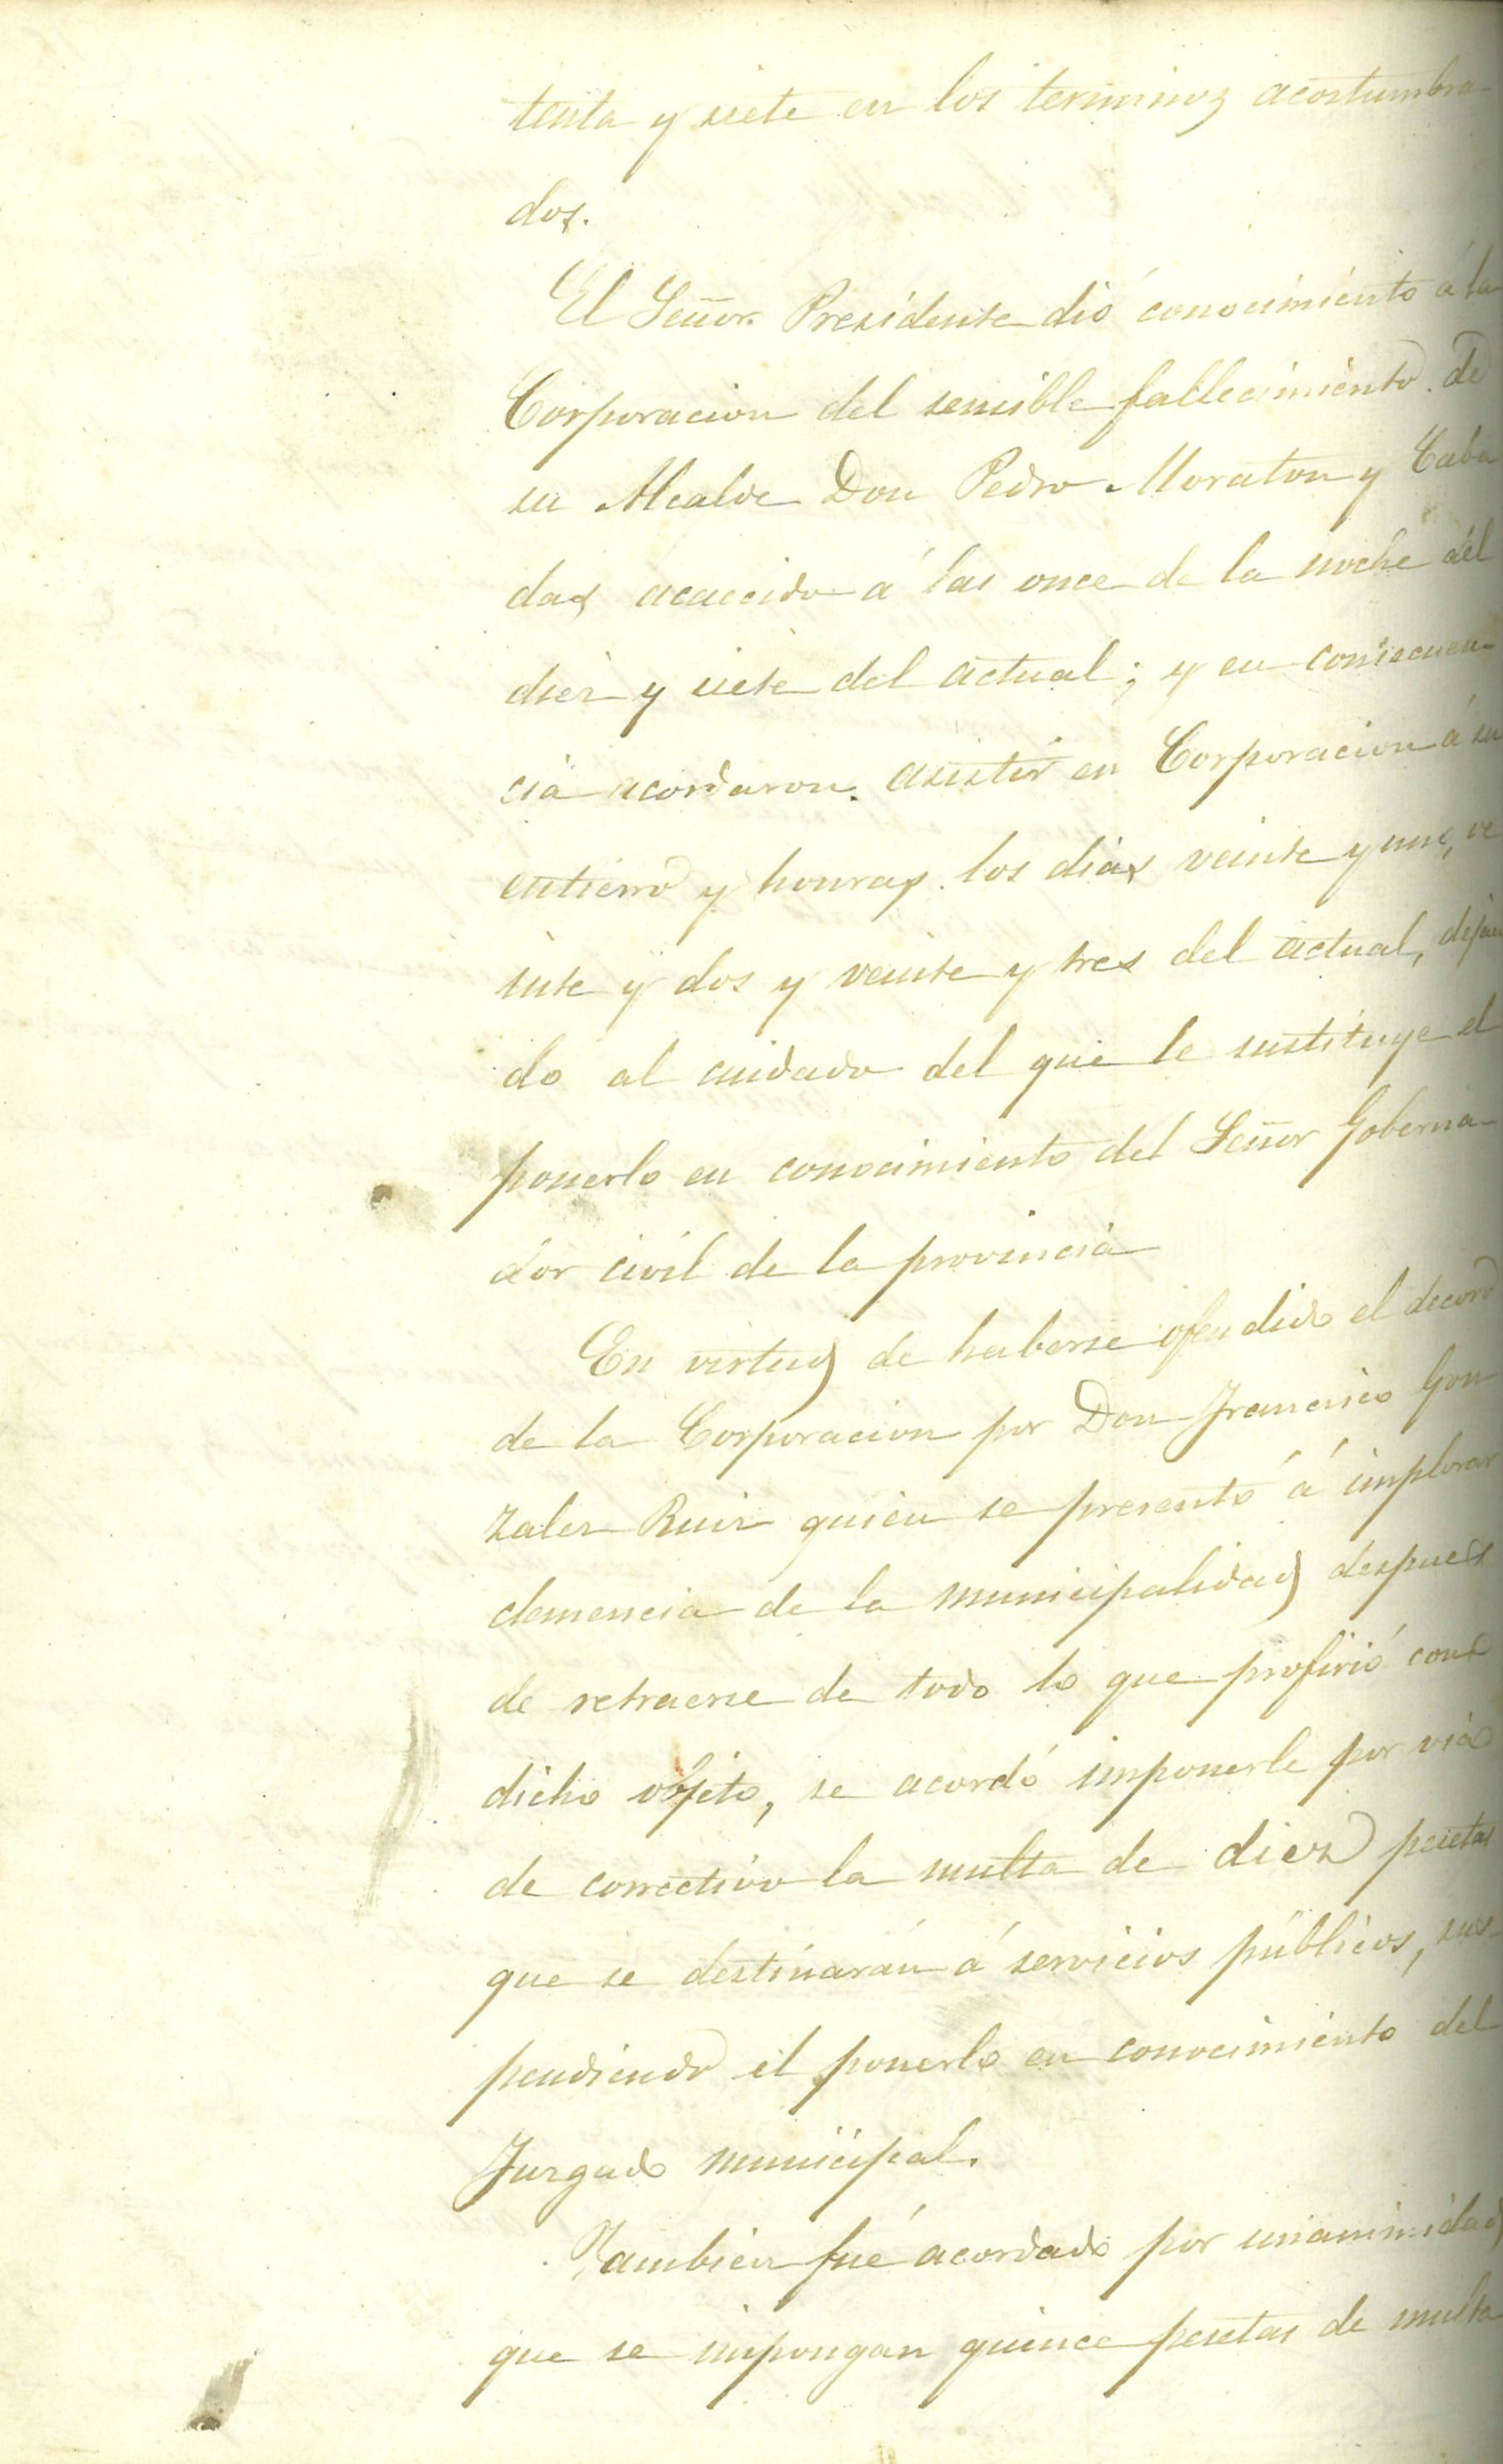 tenta y siete en los terminos acostumbra-
dos.
El Señor Presidente dió conocimiento á la
Corporacion del sensible fallecimiento de
su Alcalde Don Pedro Moraton y Caba
das acaecido á las once de la noche del
diez y siete del actual; y en consecuen-
cia acordaron asistir en Corporacion á su
entierro y honras los dias veinte y uno, ve
inte y dos y veinte y tres del actual, dejan
do al cuidado del que le sustituye el
ponerlo en conocimiento del Señor Goberna-
dor civil de la provincia
En virtud de haberse ofendido el decoro
de la Corporacion por Don Francisco Gon
zalez Ruiz quien se presentó á implorar
clemencia de la municipalidad despues
de retraerse de todo lo que profirió con
dicho objeto, se acordó imponerle por via
de correctivo la multa de diez pesetas
que se destinarán á servicios públicos, sus-
pendiendo el ponerlo en conocimiento del
Juzgado municipal.
Tambien fué acordado por unanimidad
que se impongan quince pesetas de multa